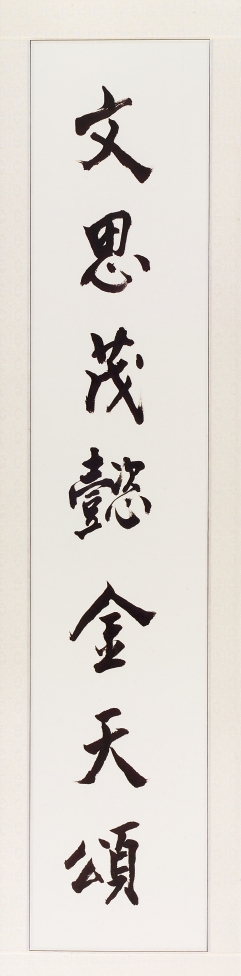 文思茂懿金天頌